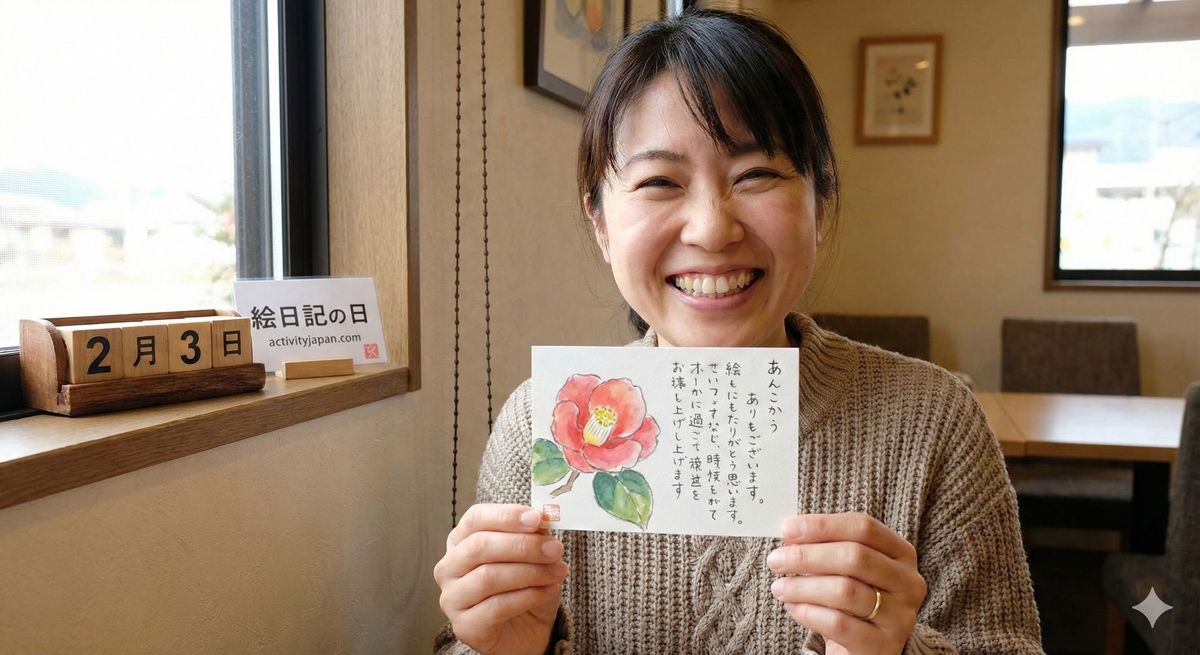 2月3日
絵日記の日
activityjapan.com
あんこかう
ありもございます。
絵もにもたりがとう思います。
せいフょすなじ、時候もがて
ホーかに過ごで
お 上げし上げます